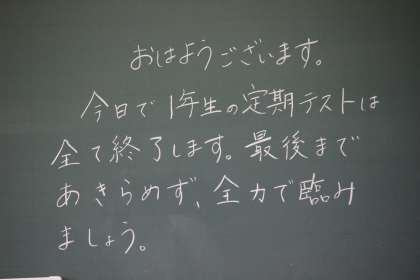 おはようございます。
今日で1年生の定期テストは
全て終了します。最後まで
あきらめず、全力で臨み
ましょう。